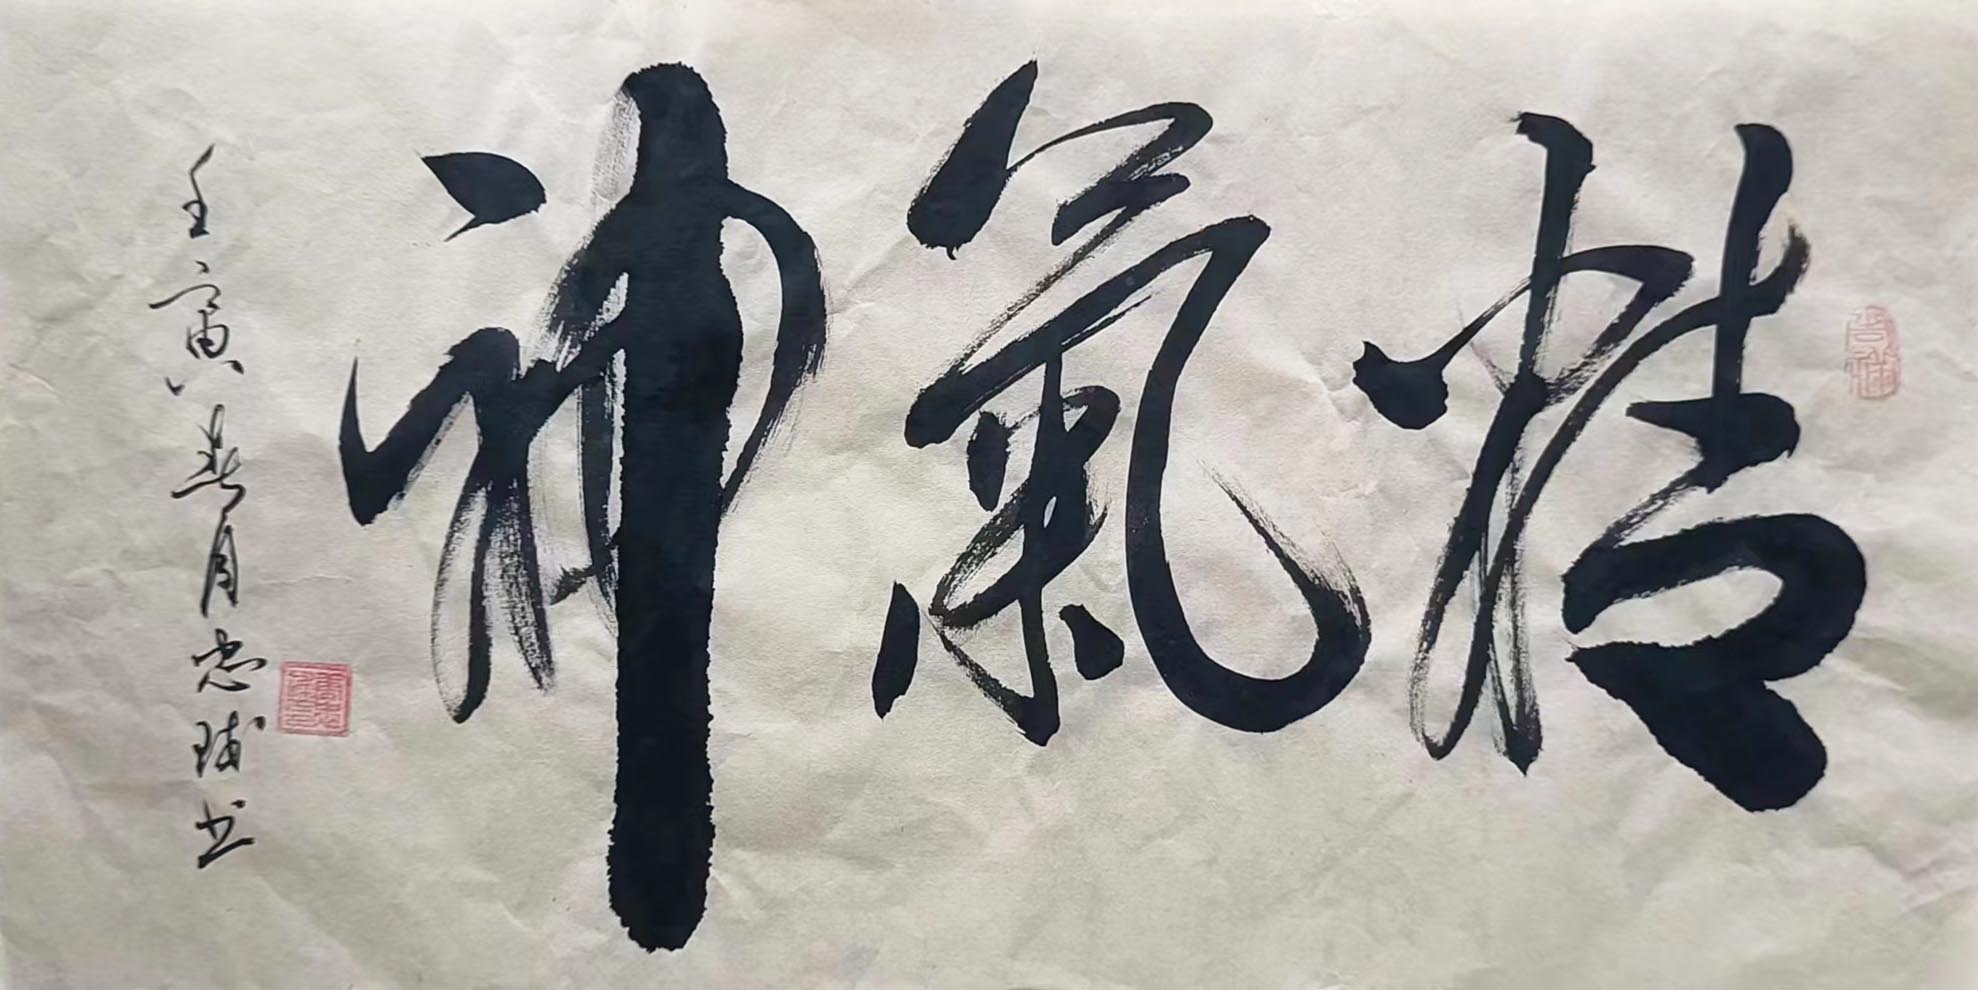 精氣神
壬寅春月忠球书